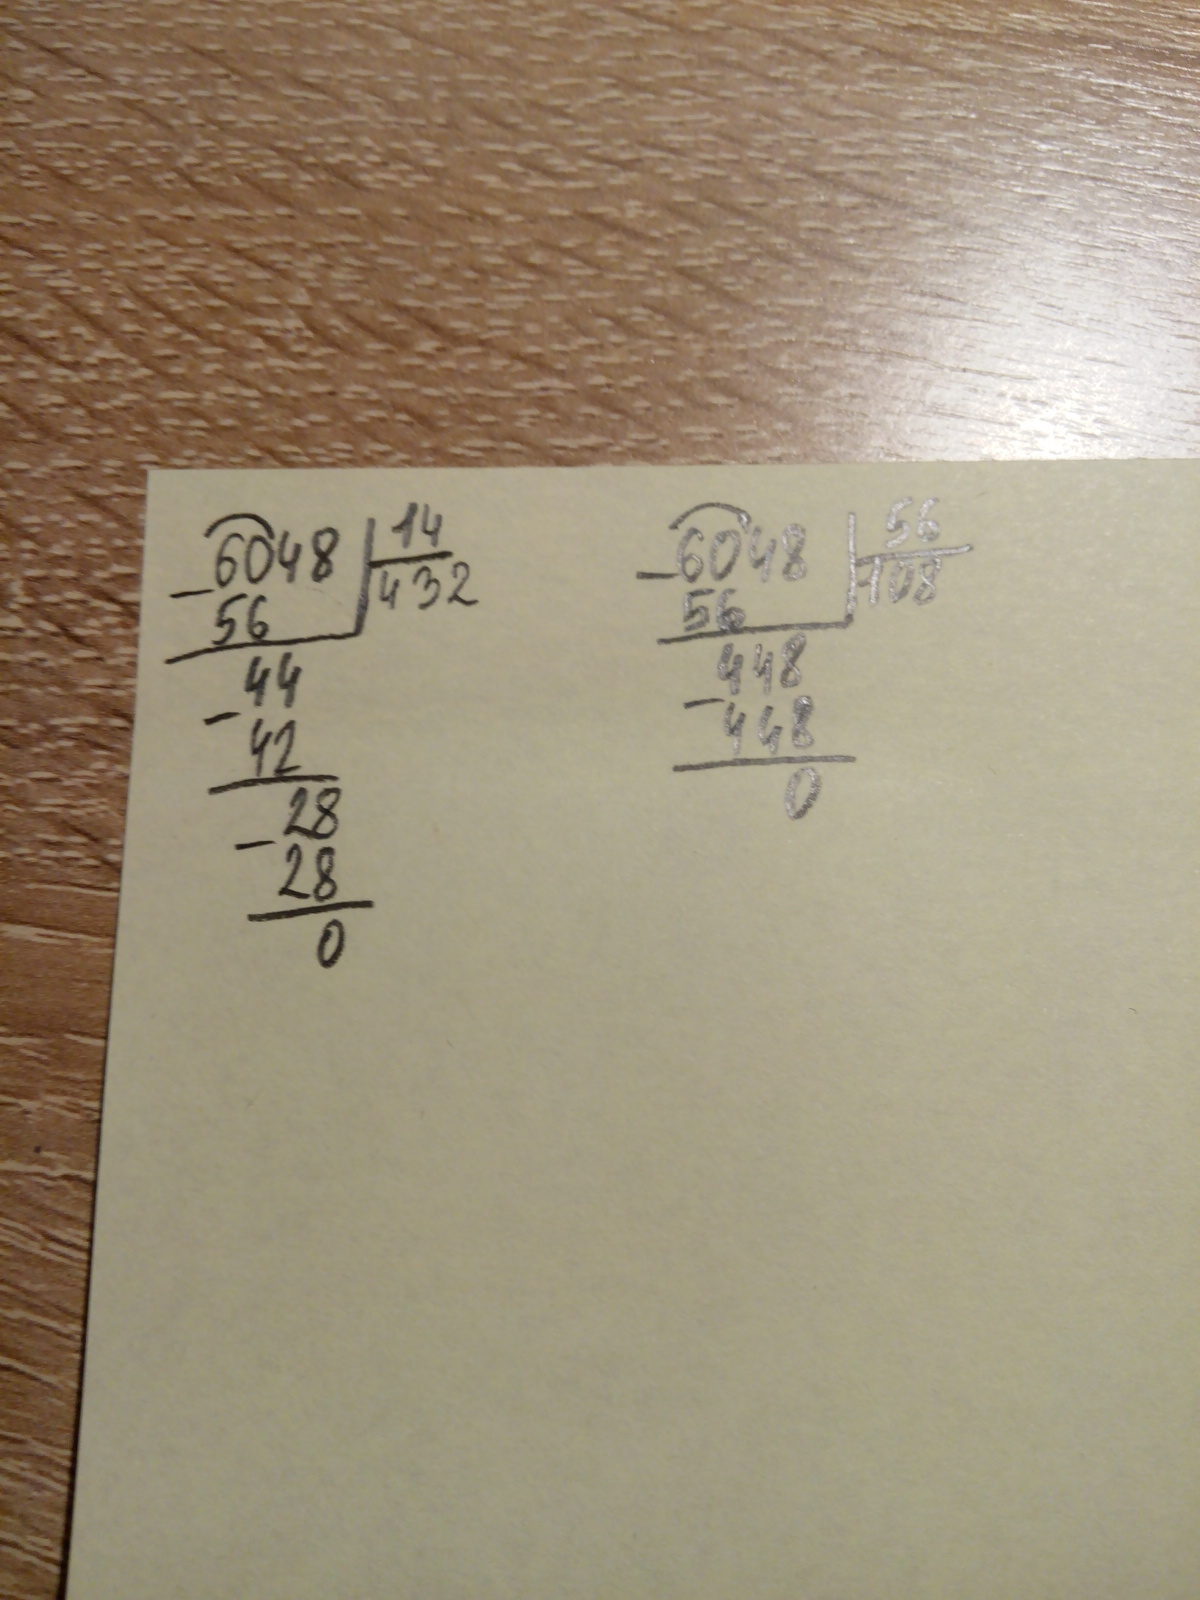 6048 14
432
56
44
42
28
28
0
6048 56
108
56
448
448
0